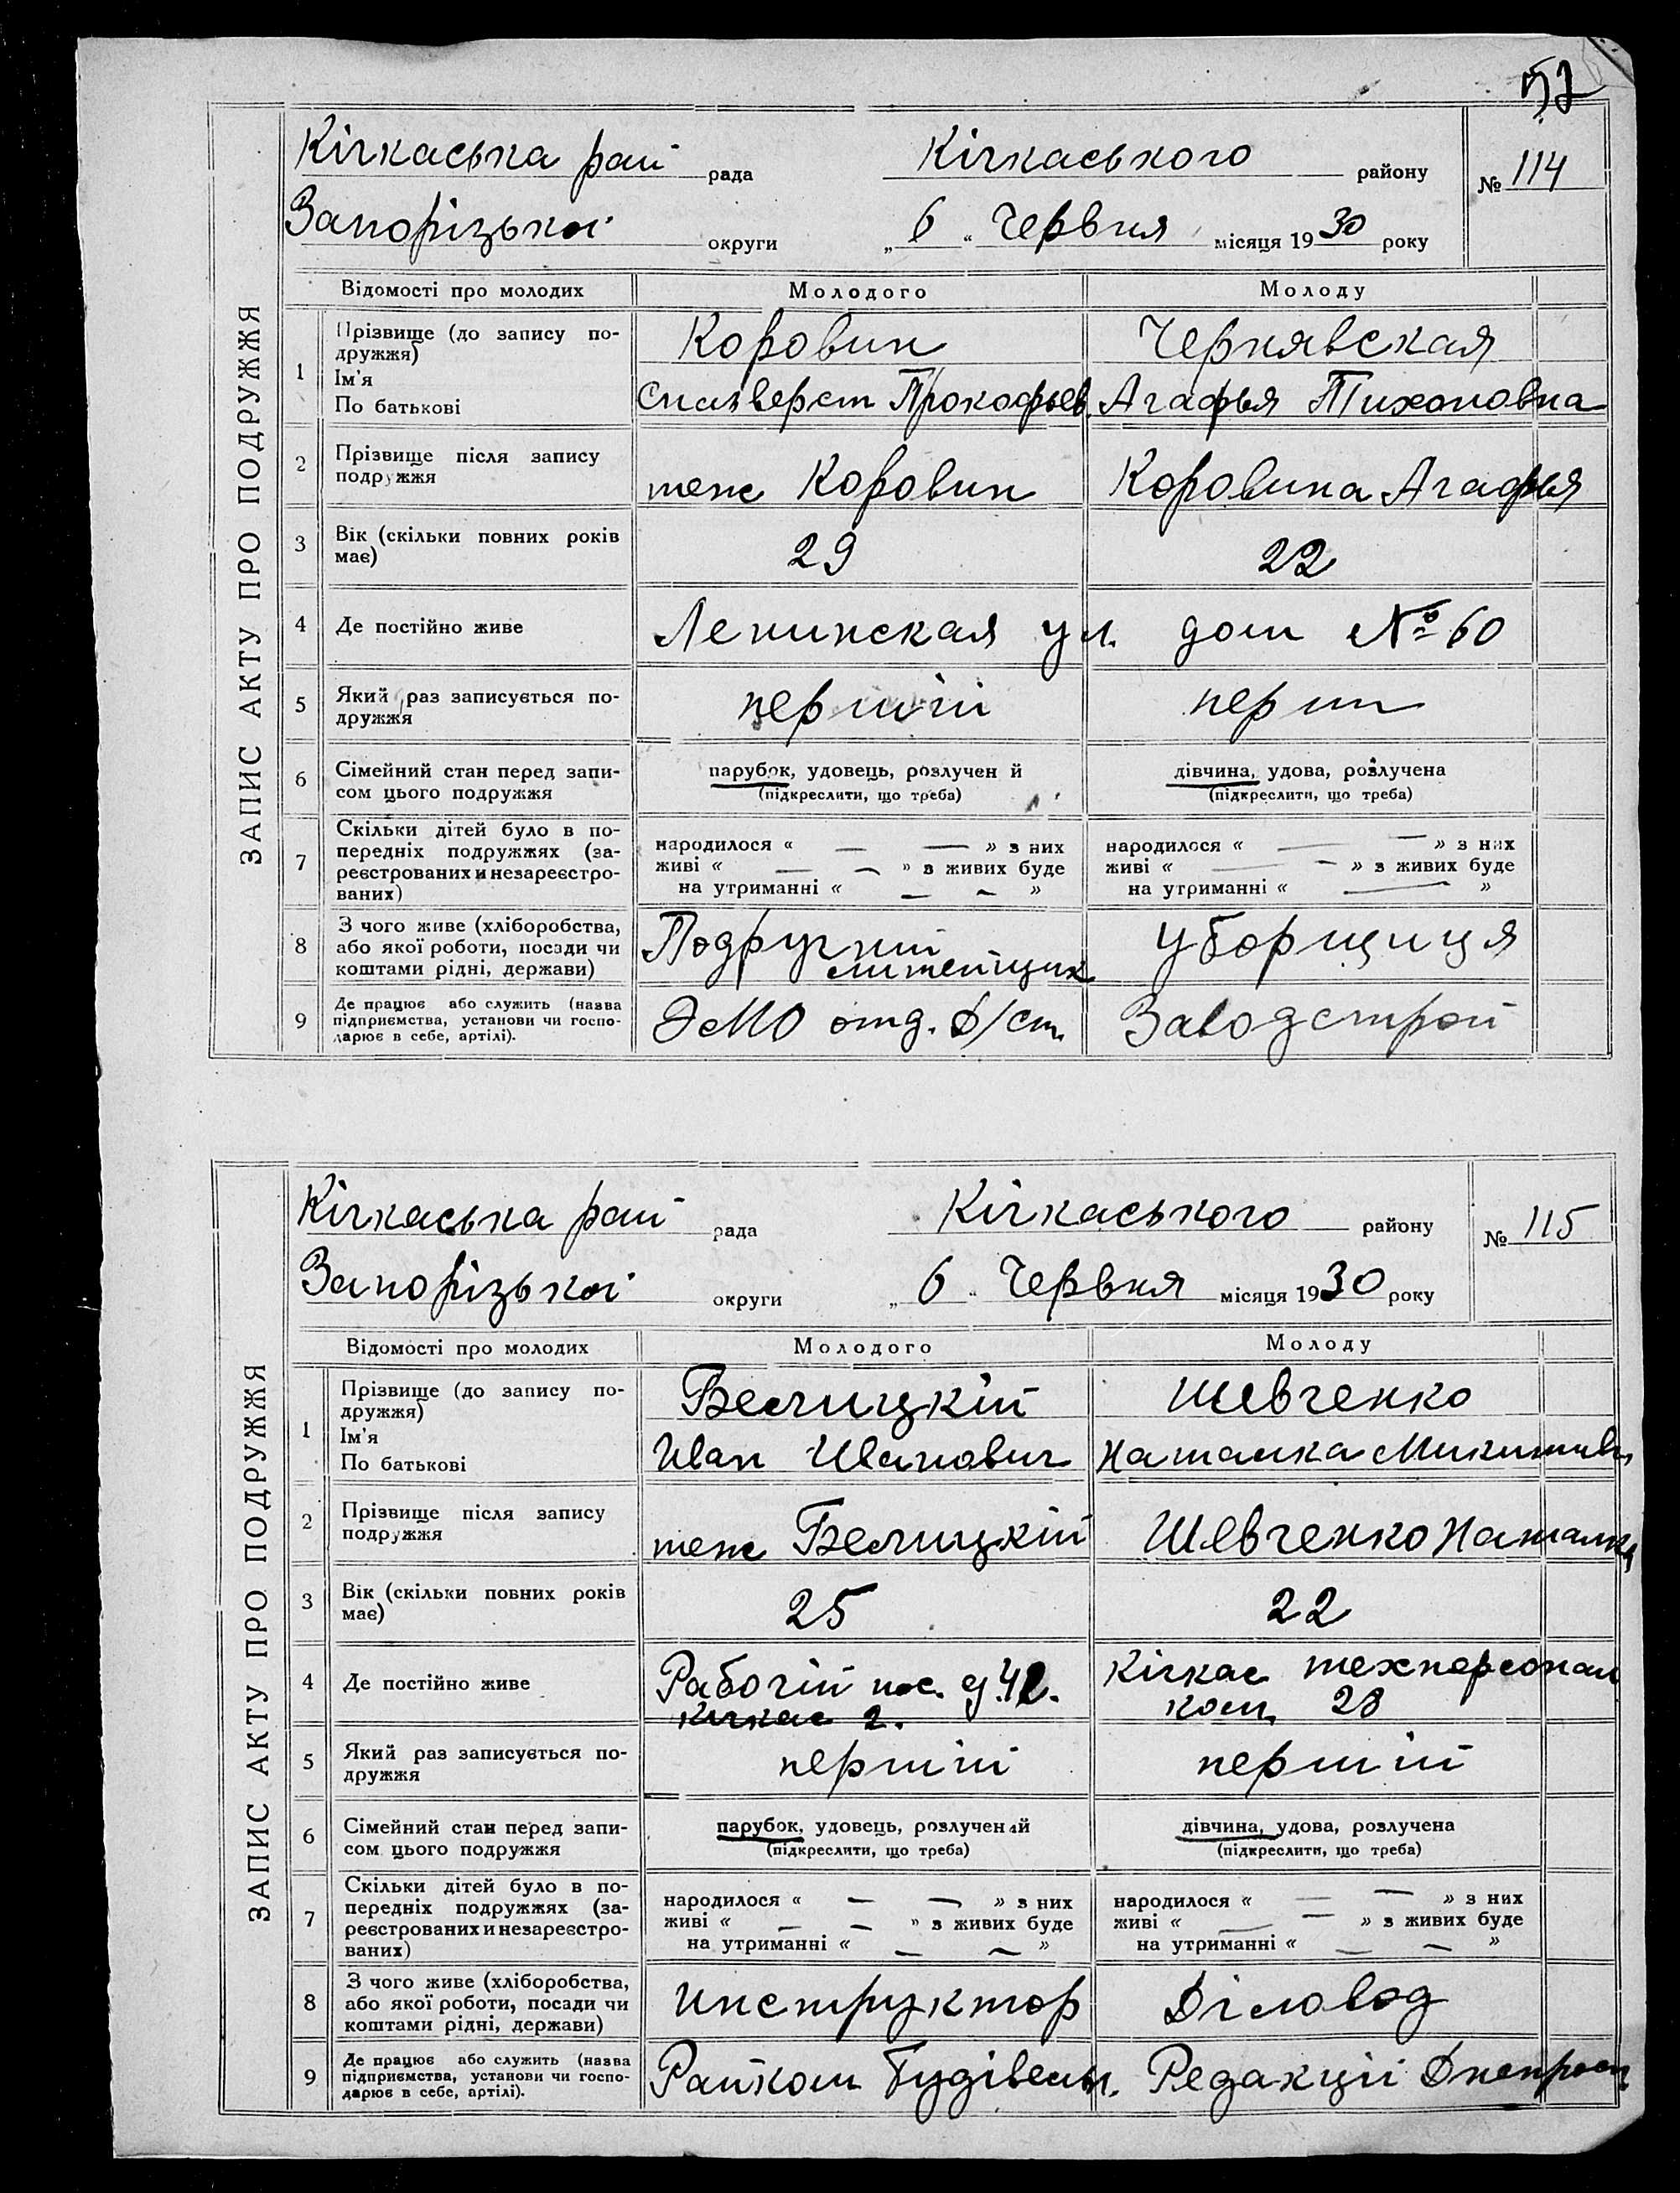 52
ЗАПИС АКТУ ПРО ПОДРУЖЖЯ
Кічкаська рай рада Кічкаського району № 114
Запорізької округи „ 6 “ Червня місяця 1930 року
Відомості про молодих Молодого Молоду
1 Прізвище (до запису по-
дружжя) Коровин Чернявская
Ім'я
По батькові Прокофьев Агафья Тихоновна
2 Прізвище після запису
подружжя теж Коровин Коровина Агафья
3 Вік (скільки повних років
має) 29 22
4 Де постійно живе Ленинская ул. дом № 60
5 Який раз записується по-
дружжя перший перш
6 Сімейний стан перед запи-
сом цього подружжя
парубок, удовець, розлучен й
(підкреслити, що треба)
дівчина, удова, розлучена
(підкреслити, що треба)
7 Скільки дітей було в по-
передніх подружжях (за-
реєстрованих и незареєстро-
ваних)
народилося « — — » з них
живі « — — » з живих буде
на утриманні « — — »
народилося « — — » з них
живі « — — » з живих буде
на утриманні « — »
8 З чого живе (хліборобства,
або якої роботи, посади чи
коштами рідні, держави)
Подручний
литейщик
уборщиця
9 Де працює або служить (назва
підприємства, установи чи госпо-
дарює в себе, артілі).
ЭМО отд. Д/ст.
Заводстрой
ЗАПИС АКТУ ПРО ПОДРУЖЖЯ
Кічкаська рай рада Кічкаського району № 115
Запорізької округи „ 6 “ Червня місяця 1930 року
Відомості про молодих Молодого Молоду
1 Прізвище (до запису по-
дружжя) Белицкій Шевченко
Ім'я
По батькові Иван Иванович Наталка Микитивн
2 Прізвище після запису
подружжя теж Белицкій Шевченко Наталка
3 Вік (скільки повних років
має) 25 22
4 Де постійно живе
Рабочій пос. д. 42.
Кічкас 2.
Кічкас техперсонал
ком. 28
5 Який раз записується по-
дружжя перший перший
6 Сімейний стан перед запи-
сом цього подружжя
парубок, удовець, розлучений
(підкреслити, що треба)
дівчина, удова, розлучена
(підкреслити, що треба)
7 Скільки дітей було в по-
передніх подружжях (за-
реєстрованих и незареєстро-
ваних)
народилося « — — » з них
живі « — — » з живих буде
на утриманні « — — »
народилося « — — » з них
живі « — — » з живих буде
на утриманні « — — »
8 З чого живе (хліборобства,
або якої роботи, посади чи
коштами рідні, держави)
Инструктор
Діловод
9 Де працює або служить (назва
підприємства, установи чи госпо-
дарює в себе, артілі).
Райком Будівельн.
Редакції Днепрост